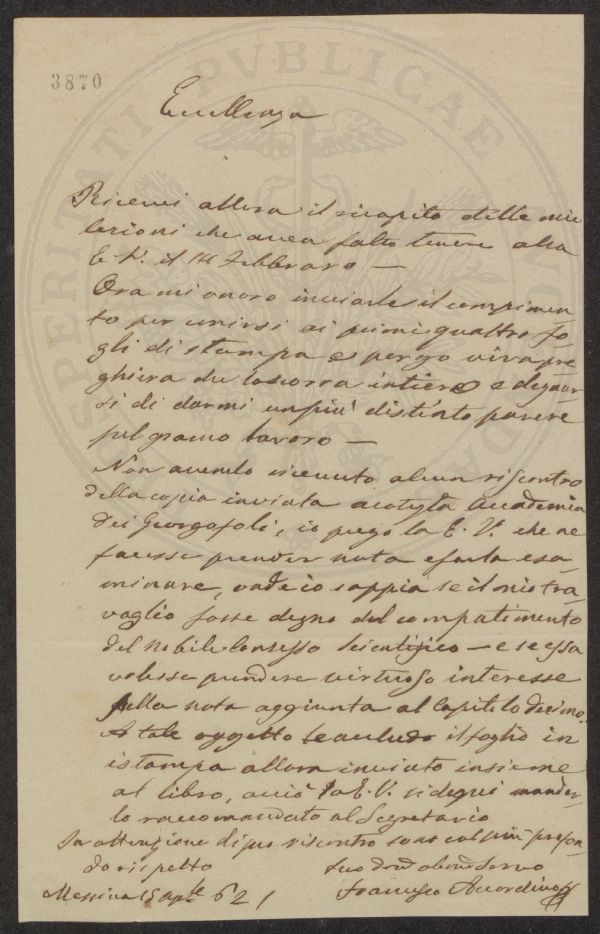 3870
Eccellenza
Ricevei allora il ricapito delle mie
lezioni che avea fatto tenere alla
E. V. il 14 Febbraro —
Ora mi onoro inviarle il compimen
to per unirsi ai primi quattro fo
gli di stampa e porgo viva pre
ghiera di intiero e degnar
si di darmi un più distinto parere
sul gramo lavoro —
Non avendo ricevuto alcun riscontro
della copia inviata a cotesta Accademia
dei Georgofoli, io prego la E. V. che ne
facesse prender nota e farla esa-
minare, onde io sappia se il mio tra-
vaglio fosse degno del compatimento
del nobile Consesso Scientifico — e se essa
volesse prendere virtuoso interesse
sulla nota aggiunta al Capitolo decimo.
A tale oggetto le accludo il foglio in
istampa allora inviato insieme
al libro, acciò la E. V. si degni mandar
lo raccomandato al Segretario
In attenzione di suo riscontro sono col più profon
do rispetto
Suo Servo
Messina 62
Francesco
PROSPERITATI PVBLICAE